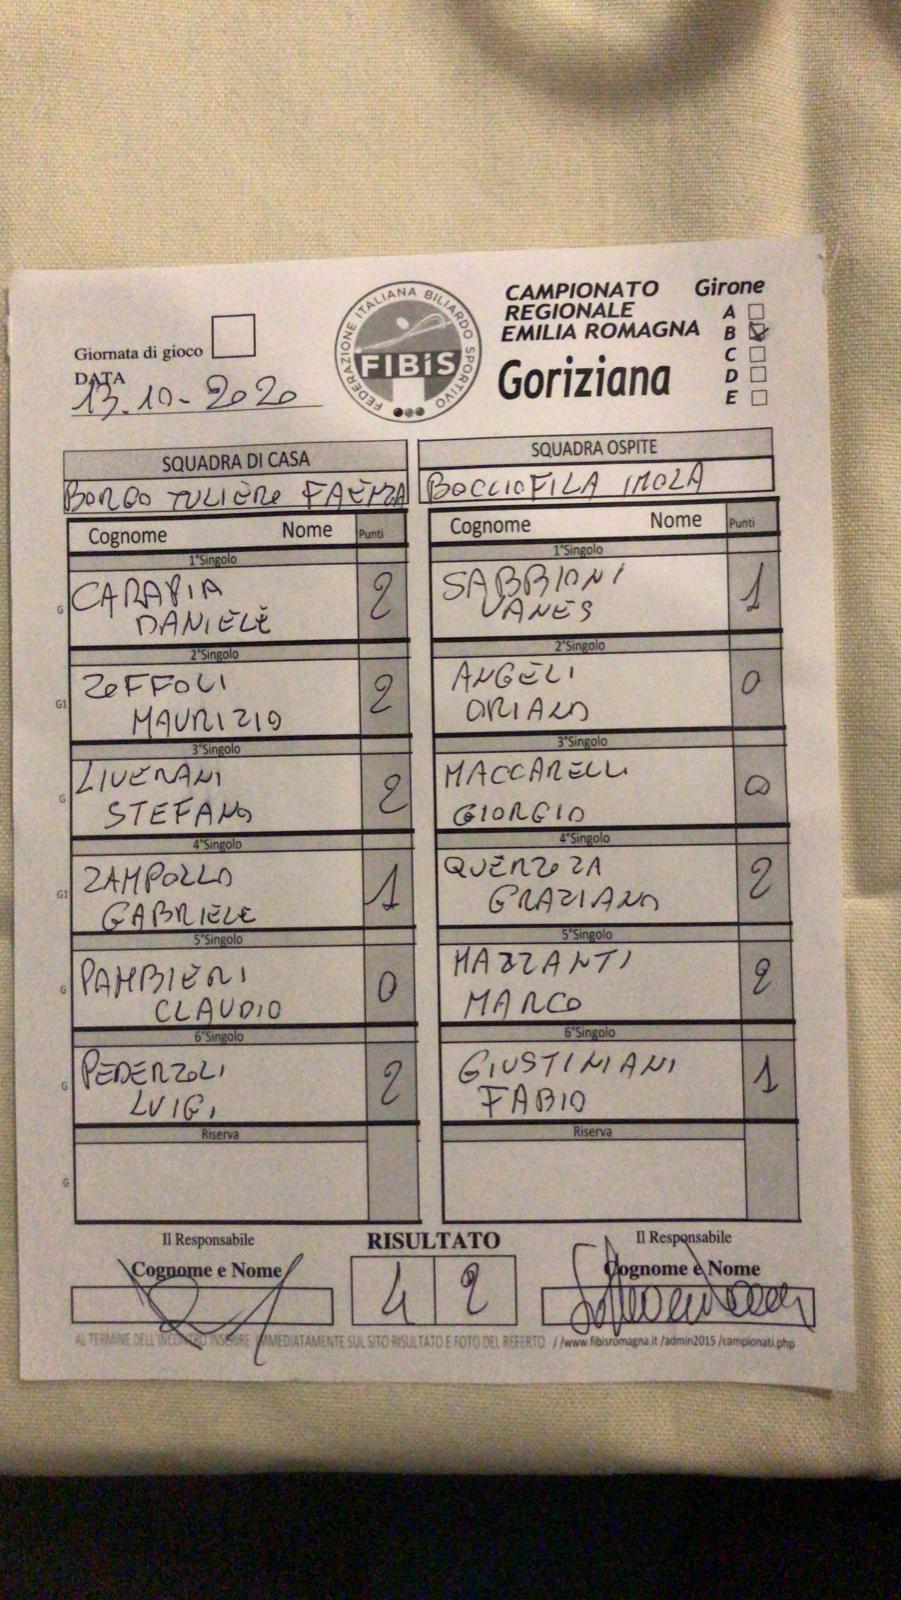 Giornata di gioco
DATA
13.10-2020
FEDERAZIONE ITALIANA BILIARDO SPORTIVO
FIBiS
CAMPIONATO
REGIONALE
EMILIA ROMAGNA
Goriziana
Girone
A
B
C
D
E
SQUADRA DI CASA
BORGO TULIERO FAENZA
SQUADRA OSPITE
BOCCIOFILA IMOLA
Cognome Nome Punti
Cognome Nome Punti
1°Singolo
1°Singolo
G CARAPIA
DANIELE
2
SABBIONI
VANES
1
2°Singolo
2°Singolo
G1 ZOFFOLI
MAURIZIO
2
ANGELI
ORIANO
0
3°Singolo
3°Singolo
G LIVERANI
STEFANO
2
MACCARELLI
GIORGIO
0
4°Singolo
4°Singolo
G1 ZAMPOLLO
GABRIELE
1
QUERZOZA
GRAZIANO
2
5°Singolo
5°Singolo
G PAMBIERI
CLAUDIO
0
MAZZANTI
MARCO
2
6°Singolo
6°Singolo
G PEDERZOLI
LUIGI
2
GIUSTINIANI
FABIO
1
Riserva
Riserva
G
Il Responsabile
Cognome e Nome
RISULTATO
4 2
Il Responsabile
Cognome e Nome
AL TERMINE DELL'INCONTRO INSERIRE IMMEDIATAMENTE SUL SITO RISULTATO E FOTO DEL REFERTO //www.fibisromagna.it /admin2015 /campionati.php